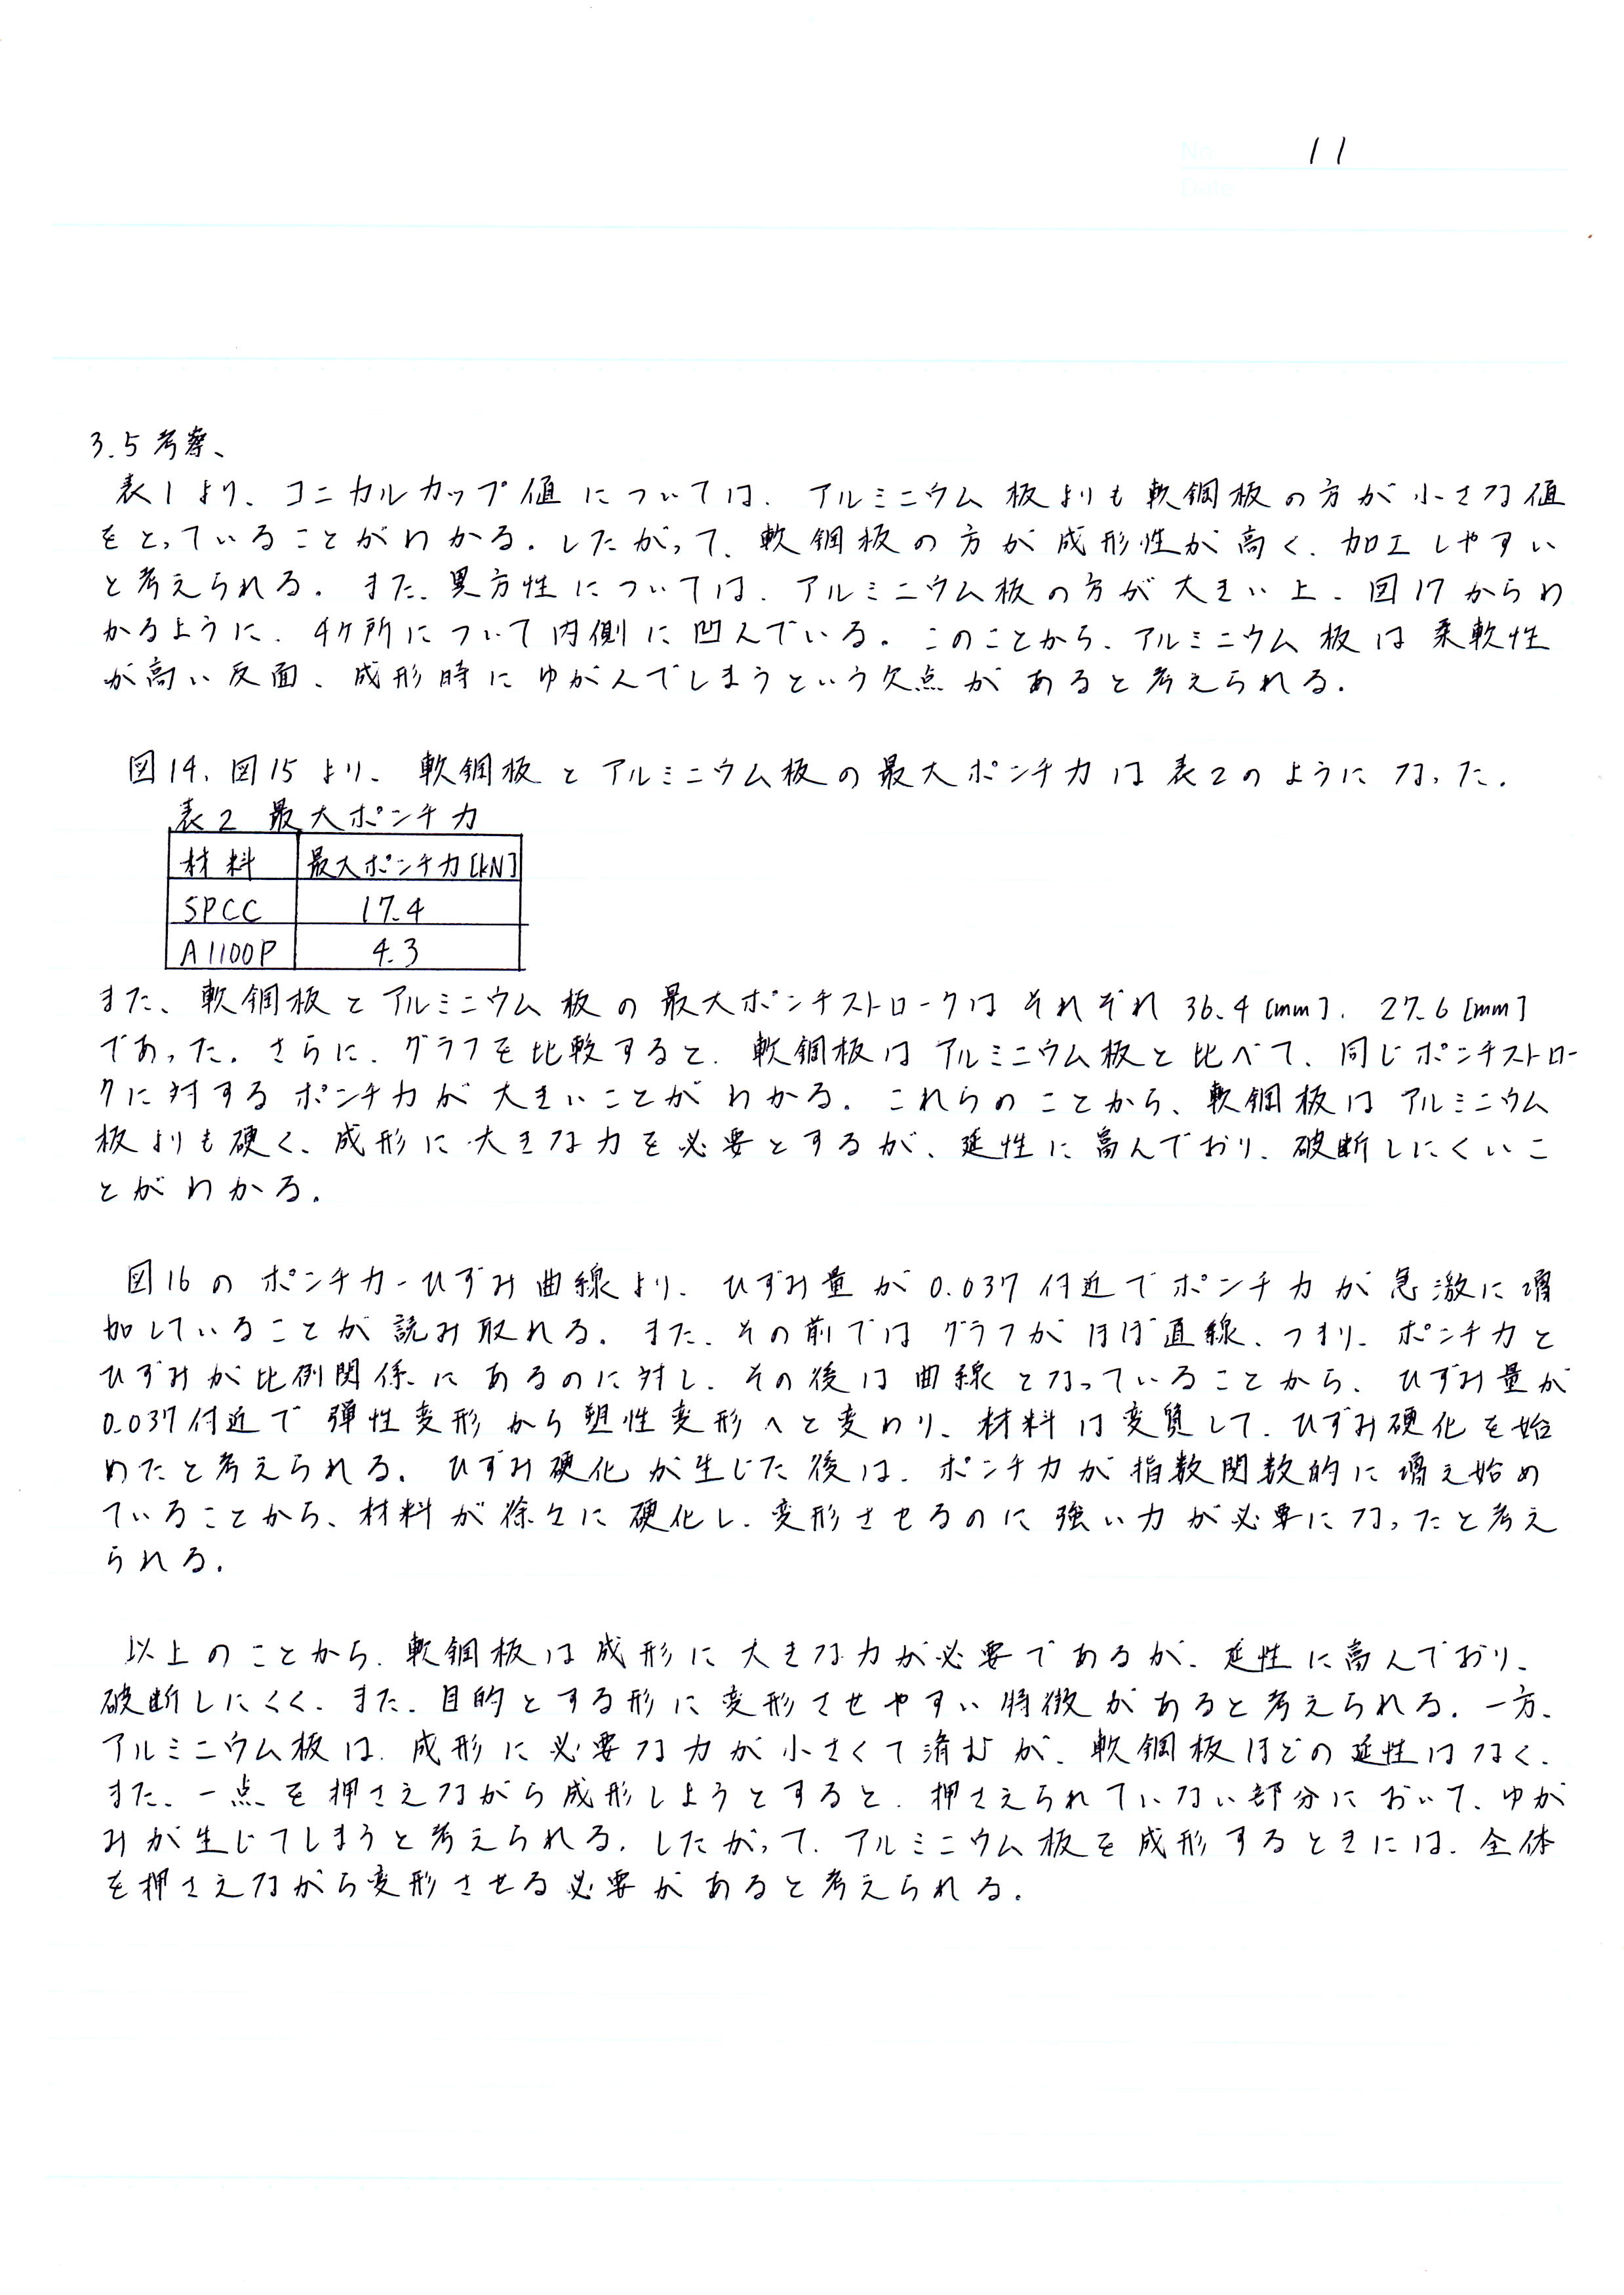 No. 11
Date
3.5 考察、
表1より、コニカルカップ値については、アルミニウム板よりも軟鋼板の方が小さな値
をとっていることがわかる。したがって、軟鋼板の方が成形性が高く、加工しやすい
と考えられる。また、異方性については、アルミニウム板の方が大きい上、図17からわ
かるように、4ケ所について内側に凹んでいる。このことから、アルミニウム板は柔軟性
が高い反面、成形時にゆがんでしまうという欠点があると考えられる。
図14、図15より、軟鋼板とアルミニウム板の最大ポンチ力は表2のようになった。
表2 最大ポンチ力
材料 最大ポンチ力[kN]
SPCC 17.4
A1100P 4.3
また、軟鋼板とアルミニウム板の最大ポンチストロークはそれぞれ36.4[mm]、27.6[mm]
であった。さらに、グラフを比較すると、軟鋼板はアルミニウム板と比べて、同じポンチストロー
クに対するポンチ力が大きいことがわかる。これらのことから、軟鋼板はアルミニウム
板よりも硬く、成形に大きな力を必要とするが、延性に富んでおり、破断しにくいこ
とがわかる。
図16のポンチ力-ひずみ曲線より、ひずみ量が0.037付近でポンチ力が急激に増
加していることが読み取れる。また、その前ではグラフがほぼ直線、つまり、ポンチ力と
ひずみが比例関係にあるのに対し、その後は曲線となっていることから、ひずみ量が
0.037付近で弾性変形から塑性変形へと変わり、材料は変質して、ひずみ硬化を始
めたと考えられる。ひずみ硬化が生じた後は、ポンチ力が指数関数的に増え始め
ていることから、材料が徐々に硬化し、変形させるのに強い力が必要になったと考え
られる。
以上のことから、軟鋼板は成形に大きな力が必要であるが、延性に富んでおり、
破断しにくく、また、目的とする形に変形させやすい特徴があると考えられる。一方、
アルミニウム板は、成形に必要な力が小さくて済むが、軟鋼板ほどの延性はなく、
また、一点を押さえながら成形しようとすると、押さえられていない部分において、ゆが
みが生じてしまうと考えられる。したがって、アルミニウム板を成形するときには、全体
を押さえながら変形させる必要があると考えられる。